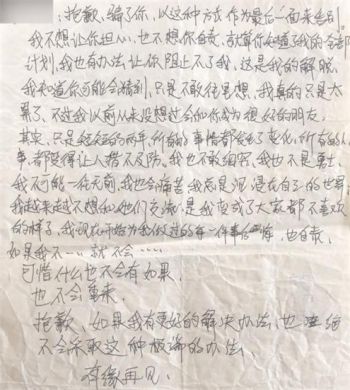 ：抱歉，骗了你，以这种方式作为最后一面来告别。
我不想让你担心，也不想你自责，就算你知道了我的全部
计划，我也有办法让你阻止不了我，这是我的解脱。
我知道你可能会猜到，只是不敢往里想，我真的只是太
累了，不过我以前从来没想过会和你成为很好的朋友。
其实，只是短短的两年，所有的事情都发生了变化，所有的人
事，都变得让人措不及防。我也不敢细究，我也不是勇士，
我不可能一往无前，我也会痛苦我总是沉浸在自己的世界，
我越来越不想和他们交流，是我变成了大家都不喜欢
的样子，我现在开始为我做过的每一件事后悔，也自责，
如果我不……就不会……
可惜什么也不会有如果，
也不会重来，
抱歉，如果我有更好的解决办法，也
不会采取这种极端的办法。
有缘再见。